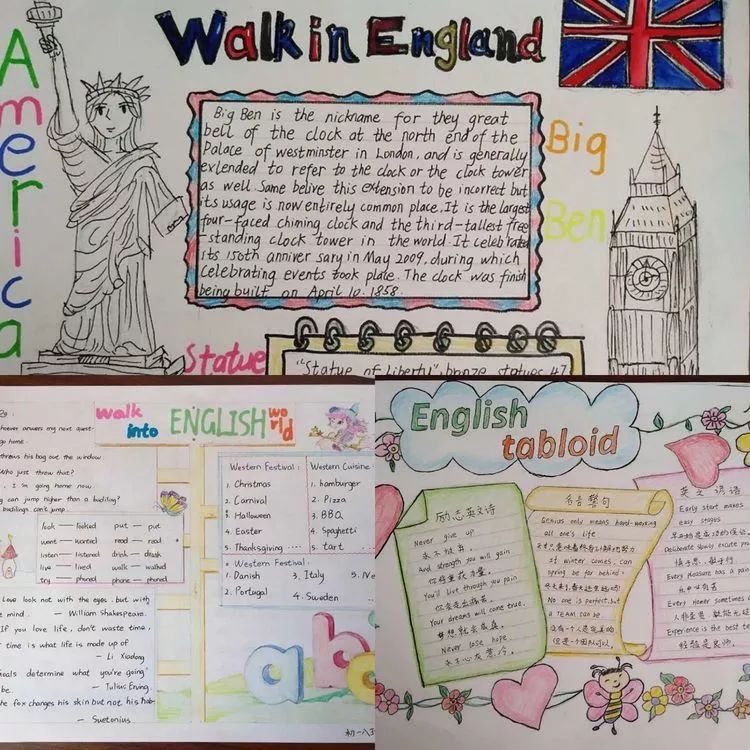 America
Walk in England
Big Ben is the nickname for they great
bell of the clock at the north end of the
Palace of westminster in London, and is generally
exlended to refer to the clock or the clock tower
as well. Same belive this extension to be incorrect but
its usage is now entirely common place. It is the largest
four-faced chiming clock and the third-tallest free
-standing clock tower in the world. It celebrated
its 150th anniver sary in May 2009, during which
celebrating events took place. The clock was finish
being built on April 10. 1858.
Big
Ben
Statue
"Statue of Liberty", bronze statues 47
walk
into
ENGLISH
world
my next quest-
go home.
throws his bag out the window.
Who just threw that?
I'm going home now.
can jump higher than a
buildings can't jump.
look — looked put — put
went — wanted read — read
listen — listened drink — drank
live — lived walk — walked
try — phoned phone — phoned
Love look not with the eyes. but with
mind. — William Shakespeare.
If you love life, don't waste time,
time is what life is made up of
— Li Xiaolong
goals determine what you're going
be. — Tulius Erving.
the fox changes his skin but not his hab-
— Suetonius
Western Festival :
1. Christmas
2. Carnival
3. Halloween
4. Easter
5. Thanksgiving ····
Western Cuisine
1. hamburger
2. Pizza
3. BBQ
4. Spaghetti
5. tart
Western Festival :
1. Danish 3. Italy 5. Ne
2. Portugal 4. Sweden
a b
初一八
English
tabloid
励志英文诗
Never give up
永不放弃.
And strength you will gain
你将重获力量.
You'll live through you pain
你会走出痛苦.
Your dreams will come true.
梦想就会成真
Never lose hope
永不心灰意冷.
名言警句
Genius only means hard-working
all one's life
If winter comes. can
spring be far behind.
No one is perfect. but
a TEAM can be
没有一个人是完美的
但是一个团队可以.
英文谚语
Early start makes
easy stages
Deliberate slowly excute pro
慎于思,敏于行
Every pleasure has a pain
Every Homer sometimes
Experience is the best te
经验是良师.